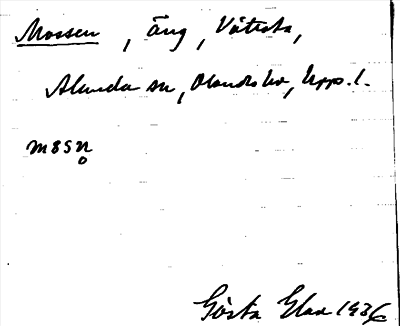 Mossen, äng, Vätesta,
Alunda sn, Olands hd, Upps. l.
mɔsn̥
Gösta Elan 1936